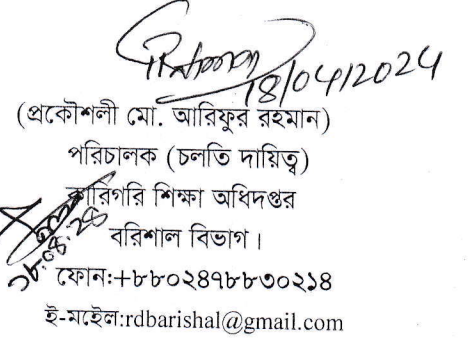 18/04/2024
(প্রকৌশলী মো. আরিফুর রহমান)
পরিচালক (চলতি দায়িত্ব)
কারিগরি শিক্ষা অধিদপ্তর
বরিশাল বিভাগ।
ফোন:+৮৮০২৪৭৮৮৩০২১৪
ই-মেইল:rdbarishal@gmail.com